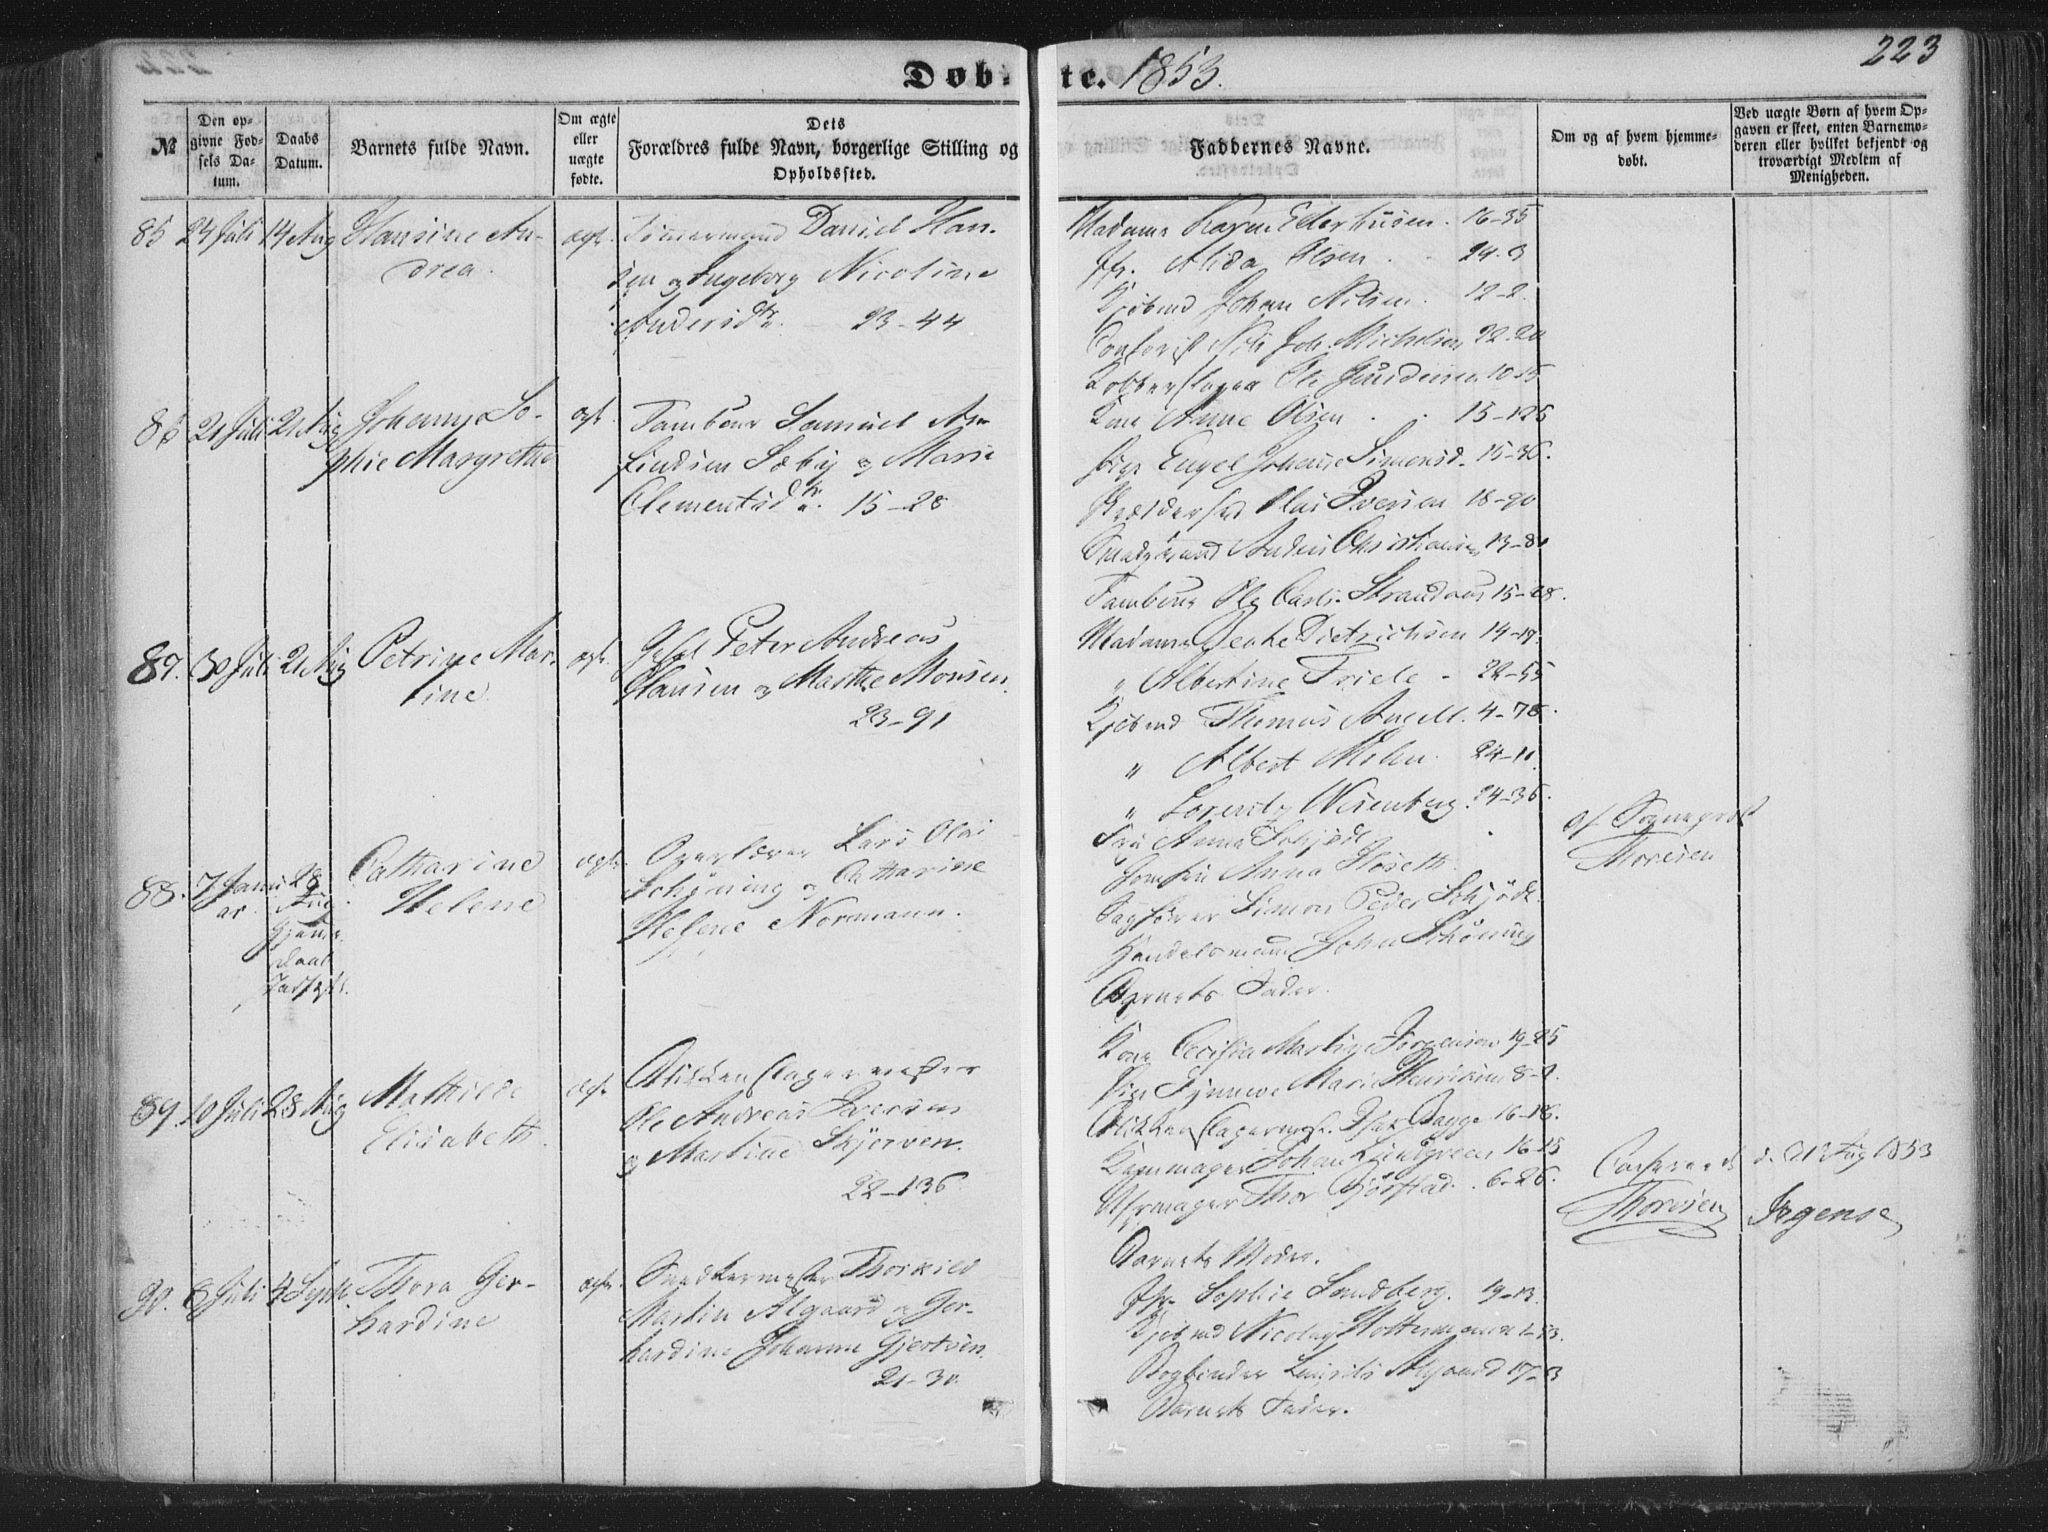 Døbte. 1853.
223
№
Den opgivne Fødsels Datum.
Daabs Datum.
Barnets fulde Navn.
Om ægte eller uægte fødte.
Dets Forældres fulde Navn, borgerlige Stilling og Opholdssted.
Faddernes Navne.
Om og af hvem hjemmedøbt.
Ved uægte Børn af hvem Opgaven er skeet, enten Barnemoderen eller hvilket bekjendt og troværdigt Medlem af Menigheden.
85 24 Juli 14 Aug Hansine An-
drea.
ægte.
Tømmermand Daniel Han-
sen og Ingeborg Nicoline
Andersdtr. 23-44
Madame Karen Ellerhusen. 16-35
Jfr. Alida Olsen. 24-3
Kjøbmd Johan Nilsen. 12-2.
Joh. Michelsen 22-20
Kobberslager Ole 10-15
86 21 Juli 21 Aug Johanne So-
phie Margrethe
ægte.
Tambour Samuel
Søby og Marie
Clementsdtr. 15-28
Kone Anne Olsen 15-125
Pige Engel Johanne Simonsd. 15-36.
Olai Iversen 18-90
Anders Christiansen 13-81
Tambour Ole Carl 15-28.
87. 30 Juli 21 Aug Petrine Mar-
tine
ægte.
Peter Andreas
Hansen og Marthe Monsen.
23-91
Madame Dietrichsen 14-19.
" Albertine Friele - 22-55
Kjøbmd Thomas Angell. 4-78.
" Albert Mohn. 24-11
" Wesenberg. 24-36.
88. 7 Janu-
ar.
28
Aug.
Catharine
Helene
ægte.
Overlærer Lars Olai
Schøning og Catharine
Helene Normann.
Fru Anna Schjødt
Jomfru Anna Floseth.
Sagfører Simon Peder Schjödt.
Handelsmann John Schøning
Barnets Fader.
af Sogneprest
Thoresen
89. 10 Juli 28 Aug Mathilde
Elisabeth.
ægte.
Blikkenslagermester
Ole Andreas Iversen
og Martine Skjerven.
22-136
Kone Cecilia Martine Jörgensen 19-25
Pige Synneve Marie Henriksen 8-2.
Blikkenslagerm. Isak Bagge 16-18.
Johan Lindgreen 16-15
Uhrmager Thor Gjörstad. 6-26.
Conferered d. 31 Aug 1853
Thoresen Irgens
90. 8 Juli 4 Septb. Thora Ger-
hardine
ægte.
Snedkermester Thorkild
Martin Algaard og Ger-
hardine Johanne Gjertsen.
21-30.
Barnets Moder.
Jfr. Sophie Sundberg. 19-13.
Kjøbmd Nicolay Holtermann 1-53.
Bogbinder Algaard 17-3
Barnets Fader.